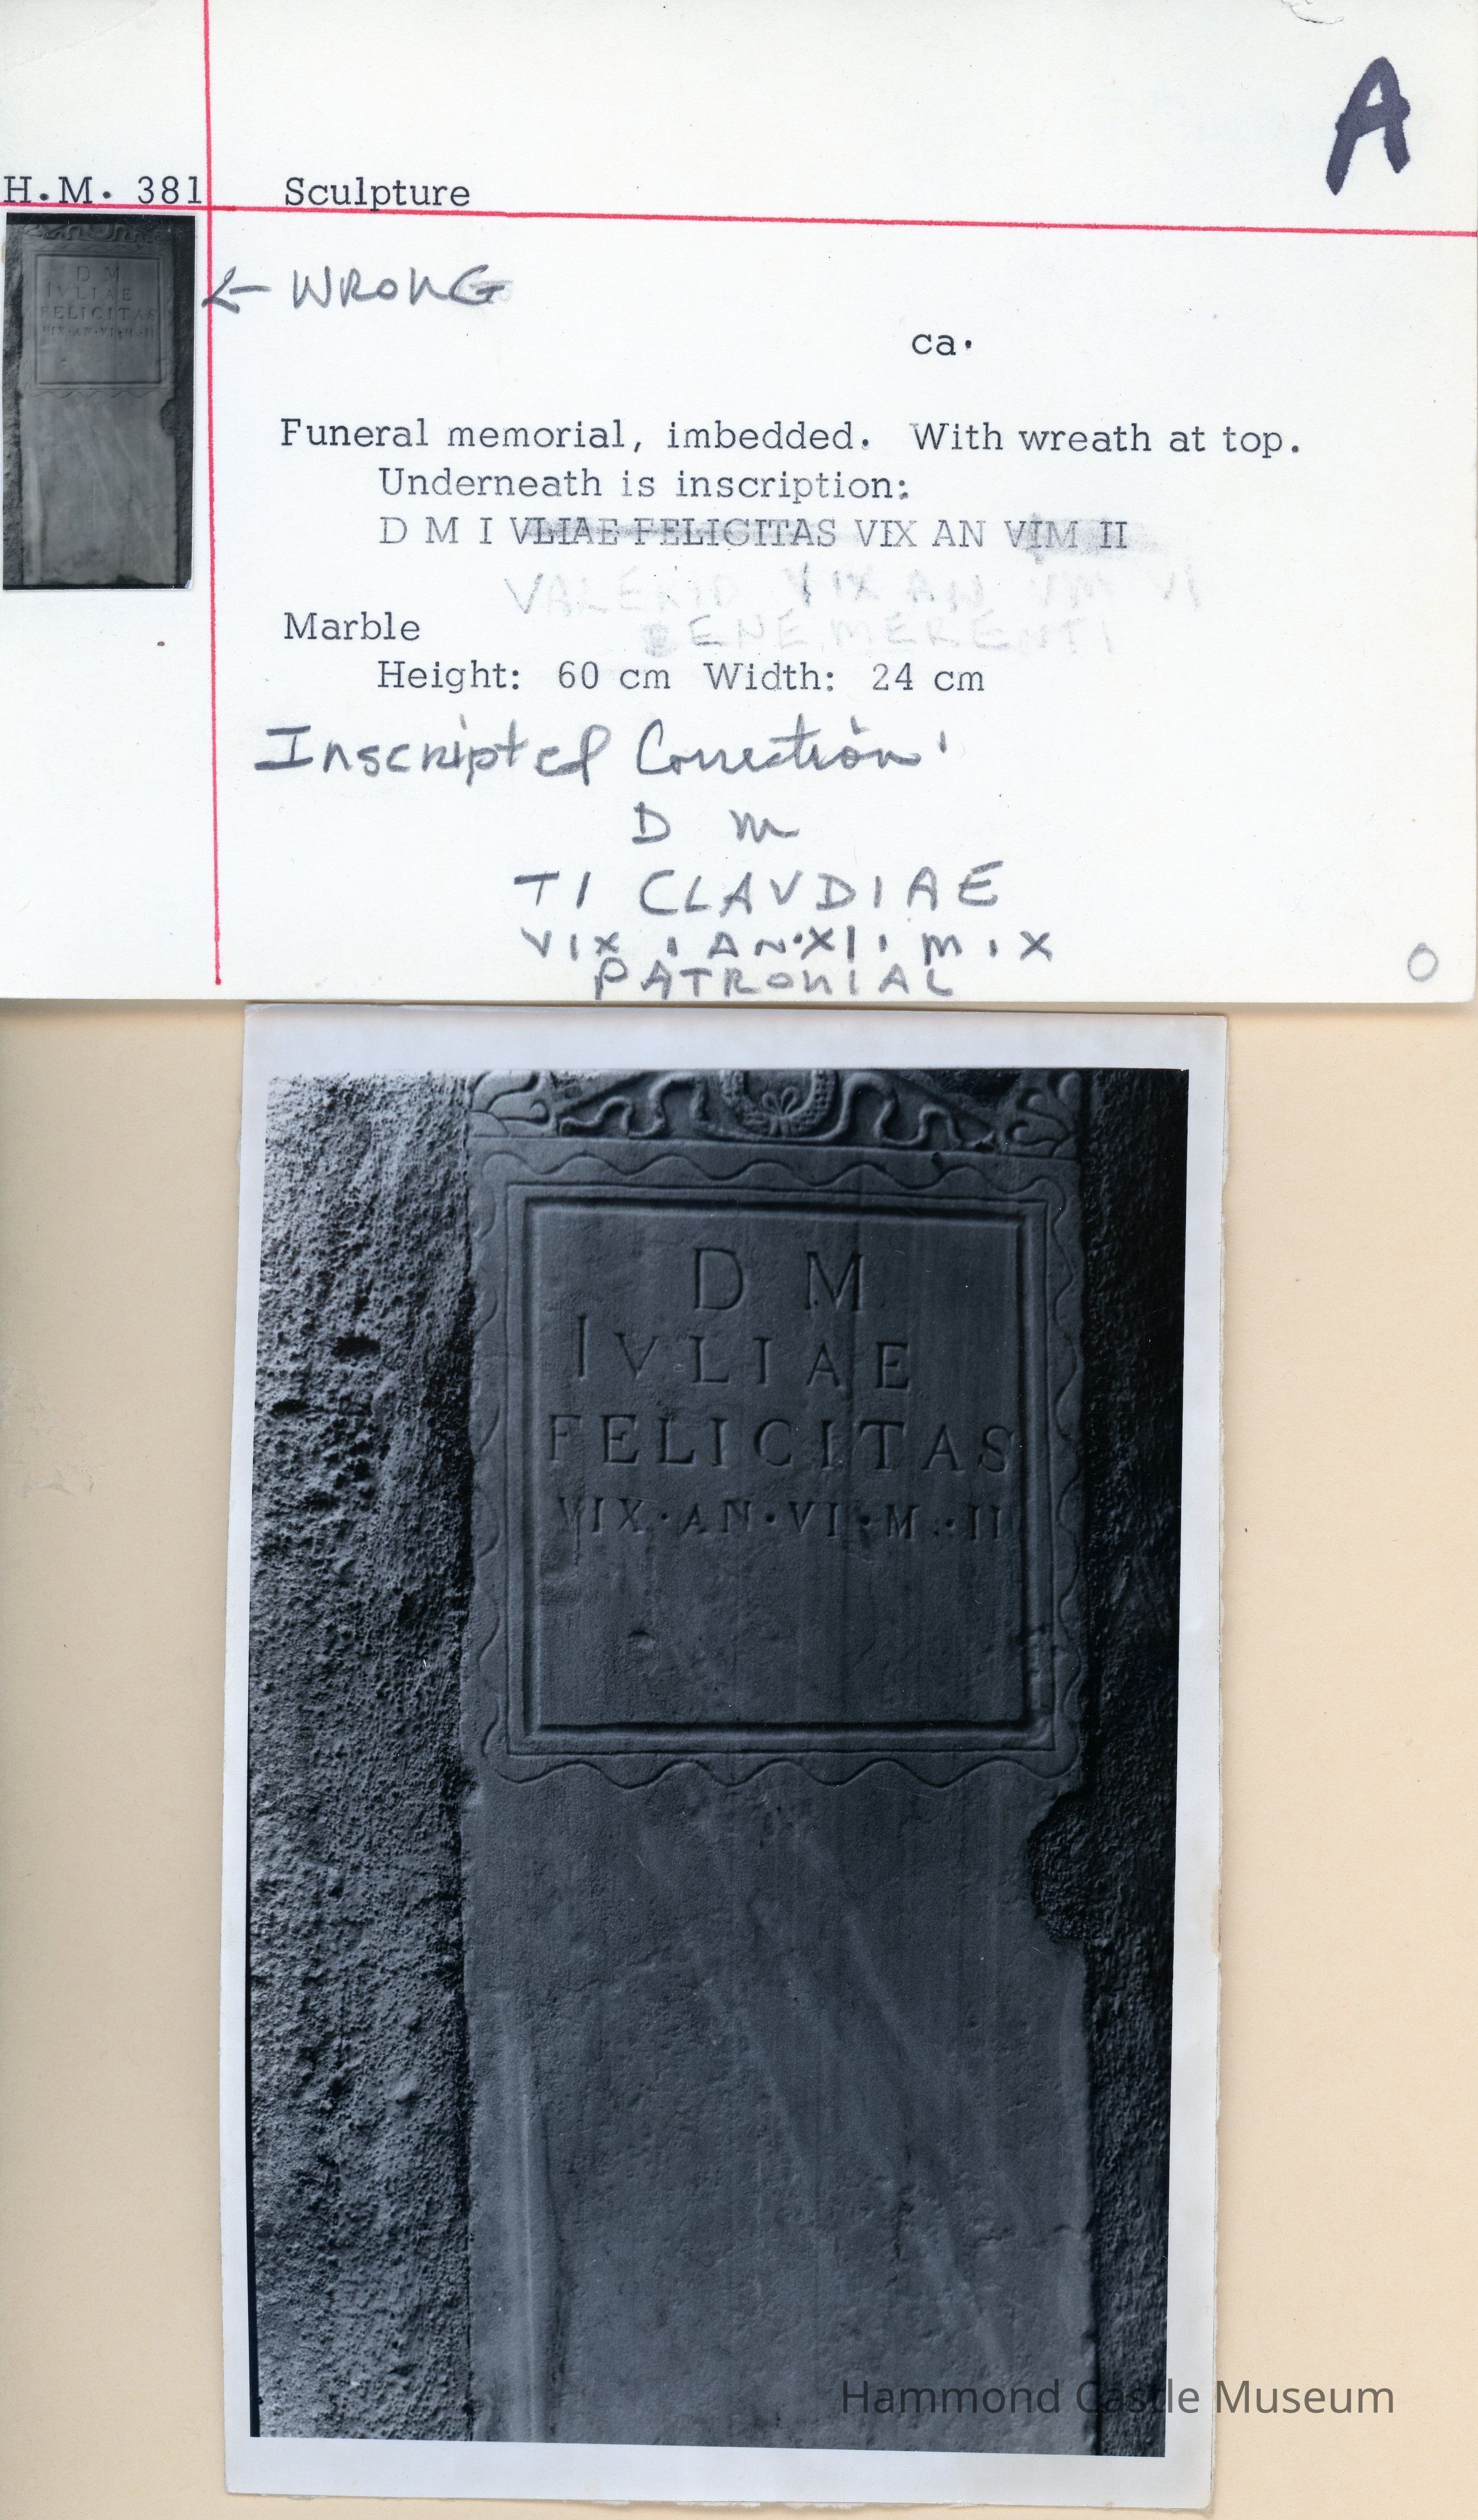 A
H.M. 381 Sculpture
D M
IVLIAE
FELICITAS
VIX·AN·VI·M·II
← WRONG
ca.
Funeral memorial, imbedded. With wreath at top.
Underneath is inscription:
D M I VLIAE FELICITAS VIX AN VIM II
VALERIO VIX AN VM VI
BENE MERENTI
Marble
Height: 60 cm Width: 24 cm
Inscripted Correction
D M
TI CLAVDIAE
VIX · AN·XI· M · X
PATRONIAL
O
D M
IVLIAE
FELICITAS
VIX·AN·VI·M·II
Hammond Castle Museum